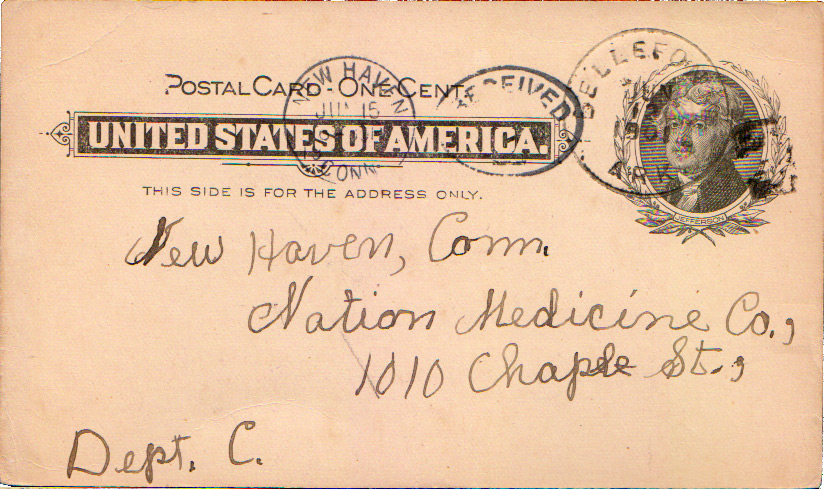 POSTAL CARD - ONE CENT.
UNITED STATES OF AMERICA.
THIS SIDE IS FOR THE ADDRESS ONLY.
NEW HAVEN
JUN 15
CONN.
RECEIVED
JUN
1901
ARK
JEFFERSON
New Haven, Conn.
Nation Medicine Co.,
1010 Chaple St.,
Dept. C.